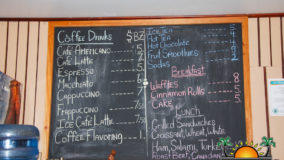 Coffee Drinks $BZ
Café Americano
Café Latte
Espresso
Macchiato
Cappuccino
Frappuccino
Ice Café Latte
Coffee Flavoring
Iced Tea
Hot Tea
Hot Chocolate
Fruit Smoothies
Sodas
Breakfast
Waffles 8
Cinnamon Rolls 5
Cake
Lunch
Grilled Sandwiches
Croissant, Wheat, White
Ham, Salami, Turkey
Roast Beef,